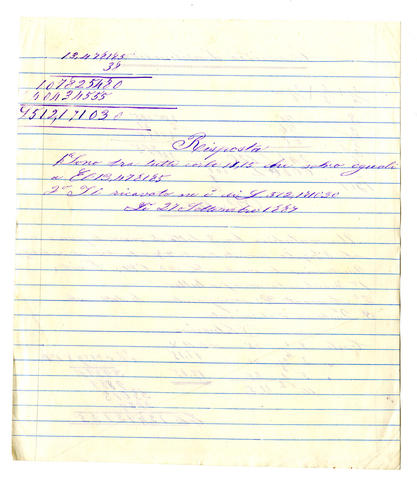 13,478185
38
107825480
40434555
512,171030
Risposta
1° Sono tra tutte 18,15 che eguali
a El 13,478185
2° Il ricavato ne è di L. 512,171030
27 Settembre 1887